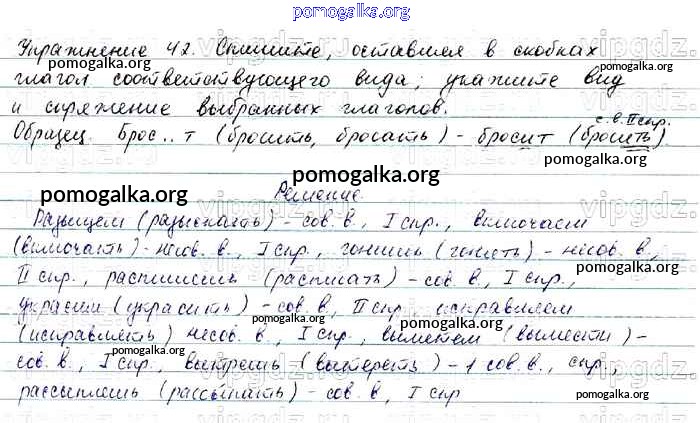 pomogalka.org
Упражнение 42. Спишите, оставляя в скобках
глагол соответствующего вида; укажите вид
и спряжение выбранных глаголов.
с.в. II спр.
Образец. Брос..т (бросить, бросать) - бросит (бросить)
pomogalka.org pomogalka.org
Решение.
Разыщем (разыскать) - сов. в., I спр., включаем
(включать) - несов. в., I спр., гонишь (гнать) - несов. в.,
II спр., распишешь (расписать) - сов. в., I спр.,
pomogalka.org
украсим (украсить) - сов. в., II спр., исправляем
(исправлять) несов. в., I спр., выметем (вымести) -
pomogalka.org
сов. в., I спр., вытрешь (вытереть) - 1 сов. в., спр.,
pomogalka.org pomogalka.org
рассыплешь (рассыпать) - сов. в., I спр
pomogalka.org
pomogalka.org